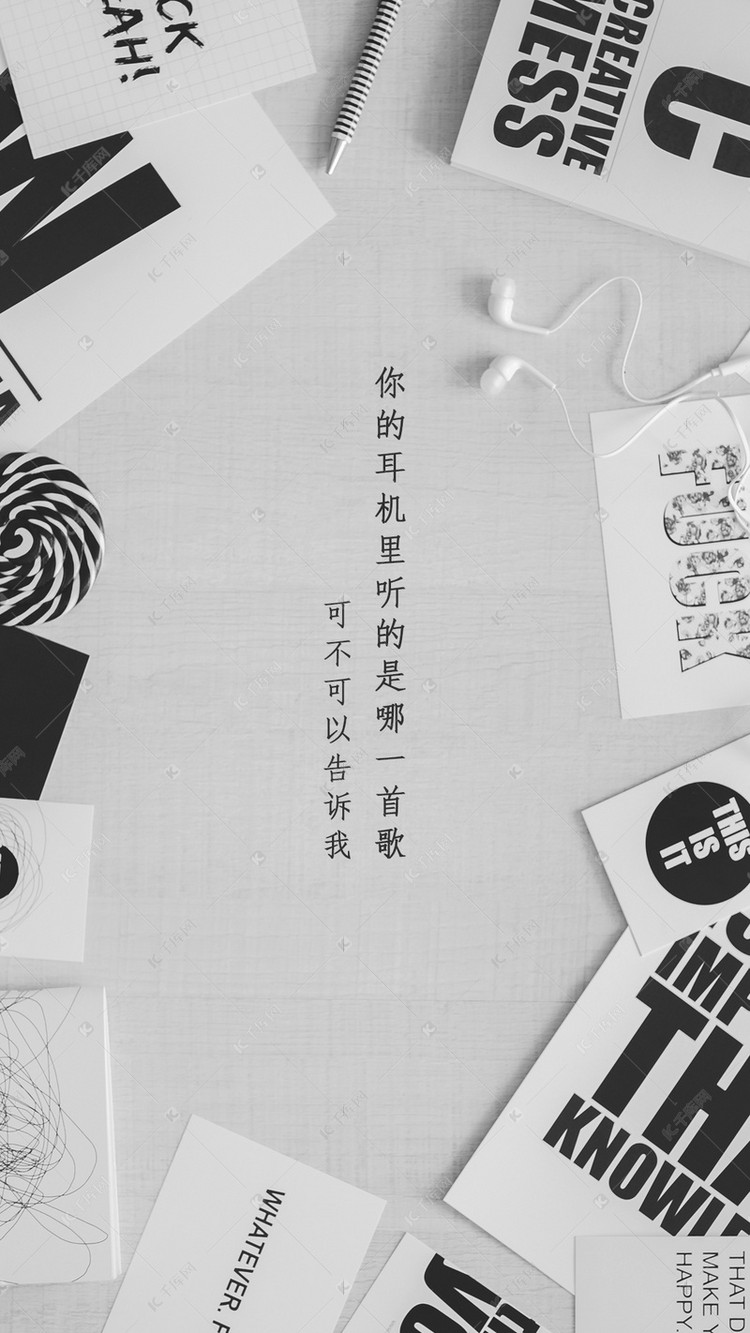 CK
AH!
CREATIVE
MESS
C
你的耳机里听的是哪一首歌
可不可以告诉我
FUCK
THIS
IS
IT
IMP
THA
KNOWL
WHATEVER. F
YO
THAT D
MAKE Y
HAPPY.
千库网